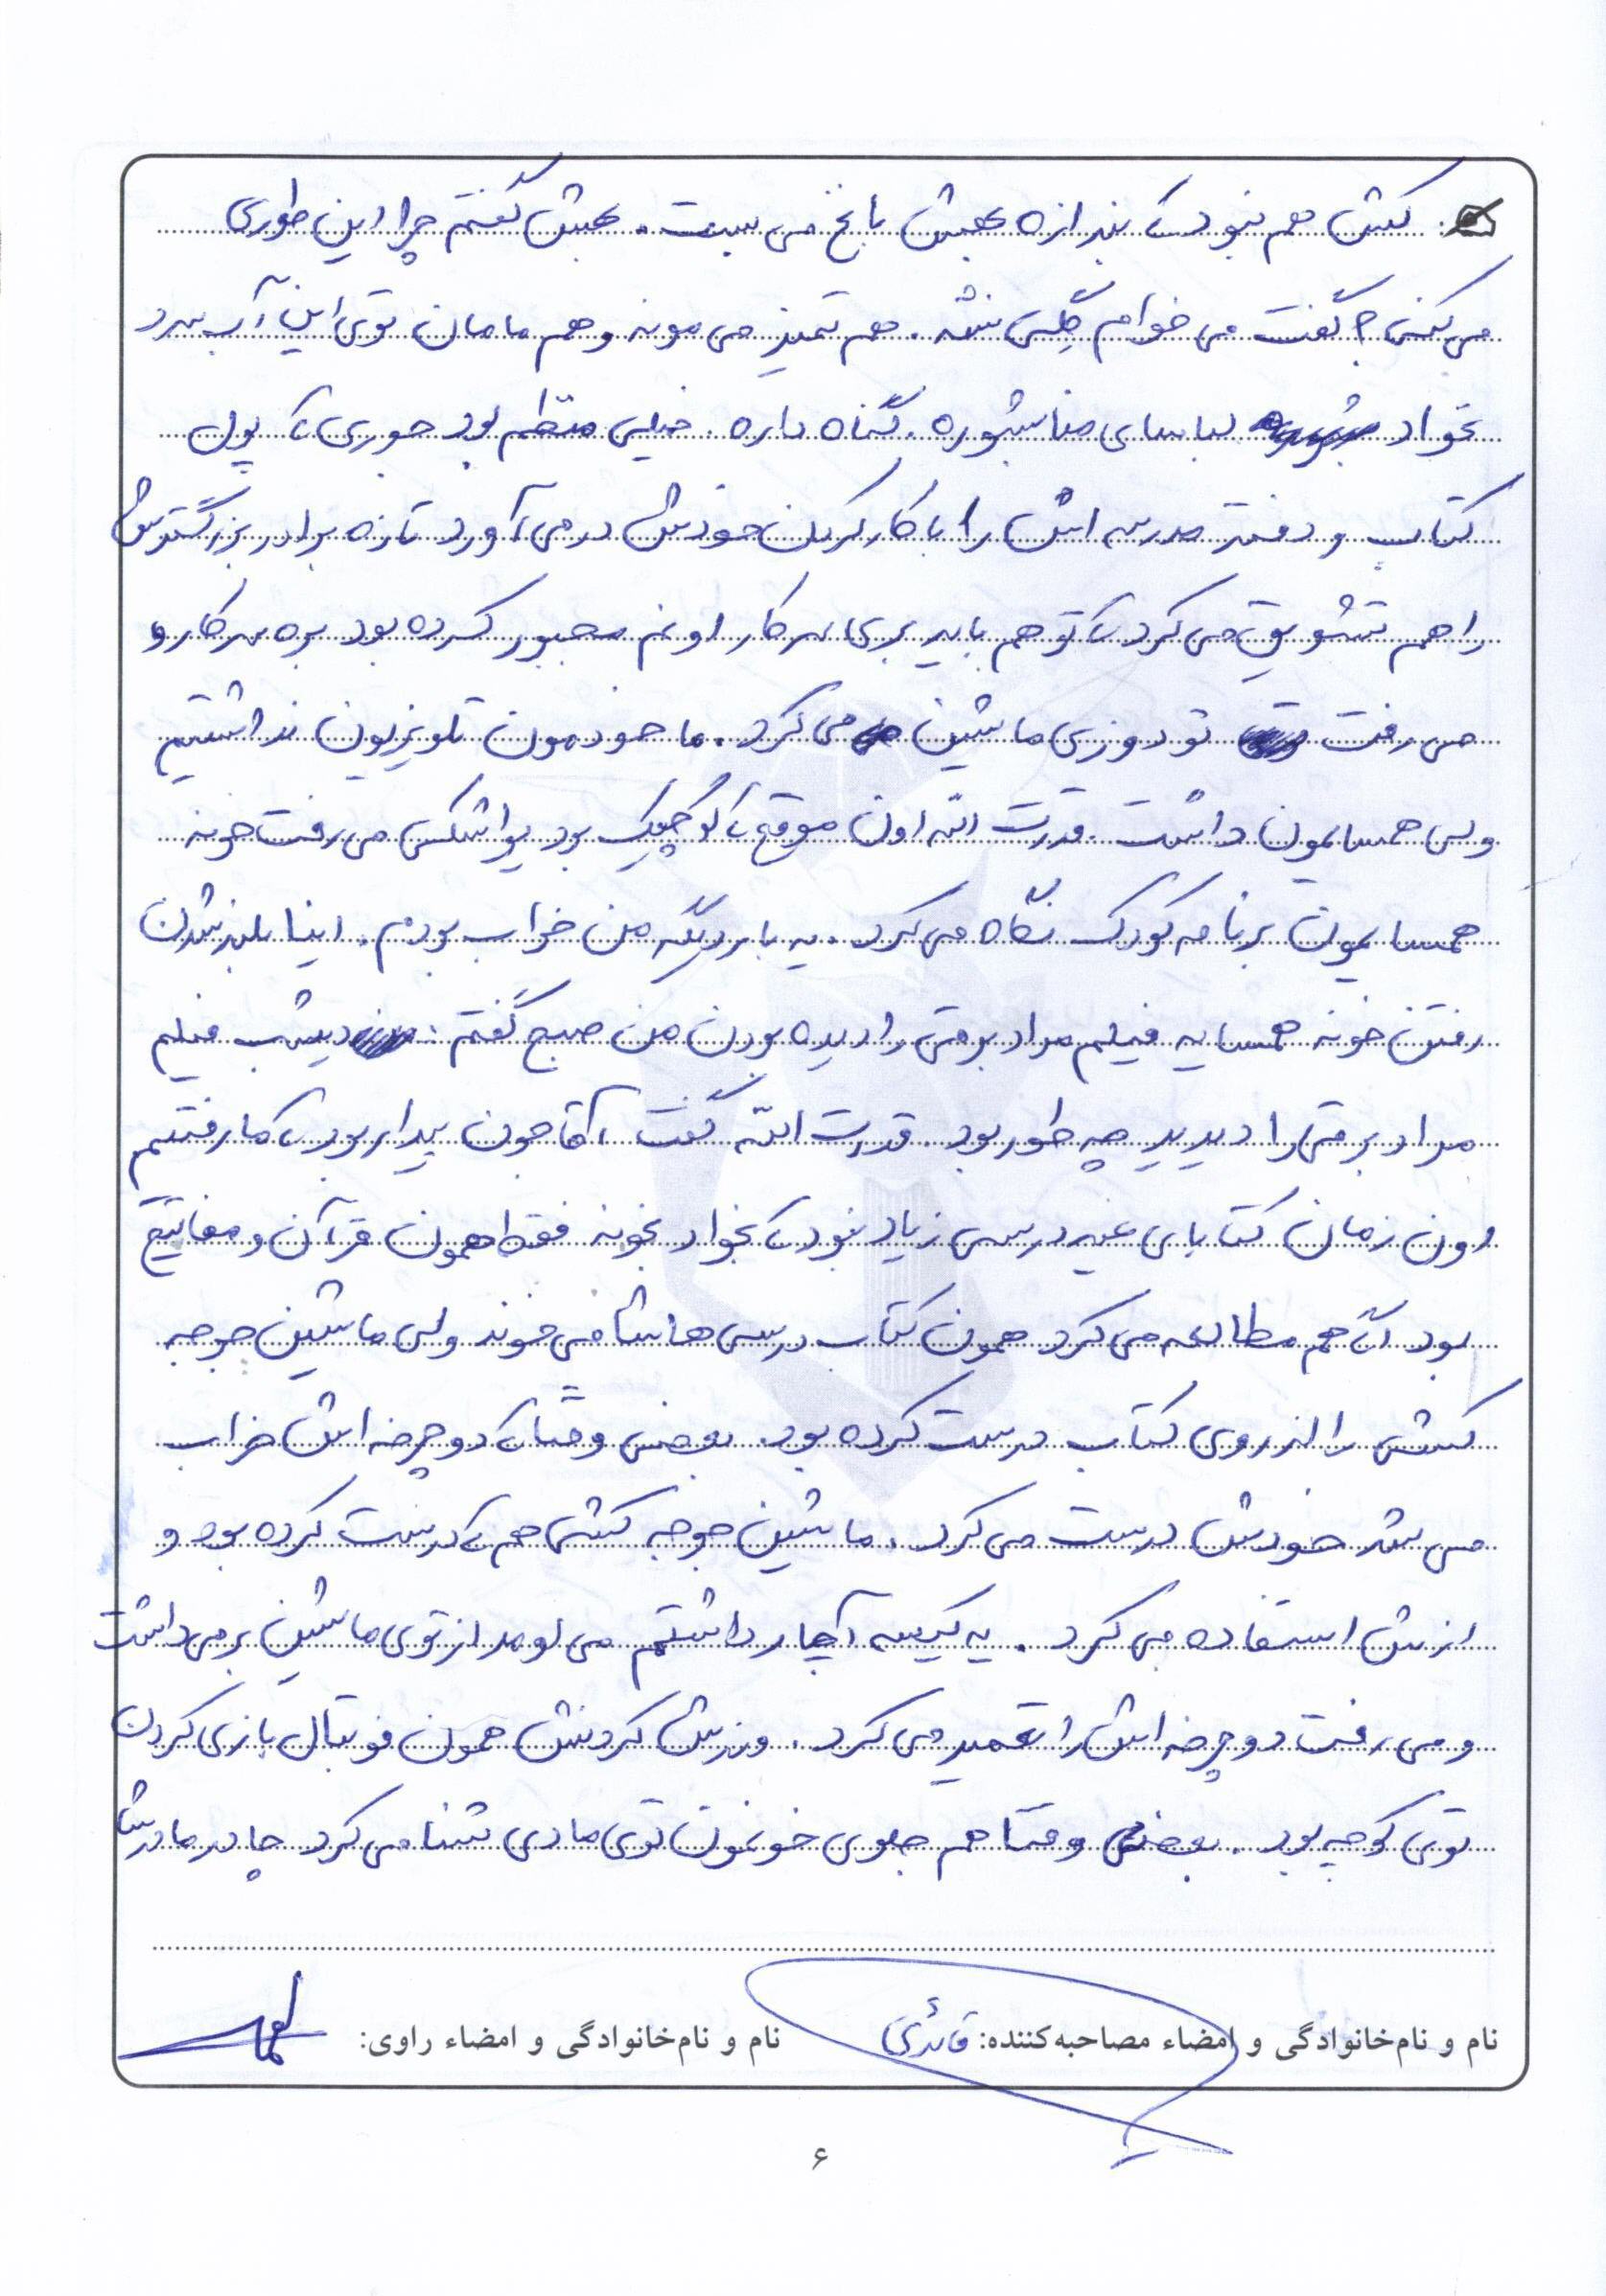 کش هم نبود که بندازه بهش با نخ می بست. بهش گفتم چرا این طوری
می کنی؟ گفت می خوام گِلی نشه. هم تمیز می مونه و هم مامان توی این آب سرد
نخواد لباسای منا بشوره. گناه داره. خیلی منظم بود جوری که پول
کتاب و دفتر مدرسه اش را با کار کردن خودش در می آورد تازه برادر بزرگترش
را هم تشویق می کرد که تو هم باید بری سر کار اونم مجبور کرده بود بره سر کار و
می رفت تودوزی ماشین می کرد. ما خودمون تلویزیون نداشتیم
ولی همسایمون داشت. قدرت الله اون موقع که کوچیک بود یواشکی می رفت خونه
همسایمون برنامه کودک نگاه می کرد. یه بار دیگه من خواب بودم. اینا بلند شدن
رفتن خونه همسایه فیلم مراد برقی را دیده بودن من صبح گفتم: دیشب فیلم
مراد برقی را دیدید چه طور بود. قدرت الله گفت، آقاجون بیدار بود که ما رفتیم
اون زمان کتابای غیر درسی زیاد نبود که بخواد بخونه فقط همون قرآن و مفاتیح
بود که هم مطالعه می کرد همون کتاب درسی هاشا می خوند ولی ماشین جوجه
کشی را از روی کتاب درست کرده بود. بعضی وقتا که دوچرخه اش خراب
می شد خودش درست می کرد. ماشین جوجه کشی هم که درست کرده بود و
ازش استفاده می کرد. یه کیسه آچار داشتم می اومد از توی ماشین بر می داشت
و می رفت دوچرخه اش را تعمیر می کرد. ورزش کردنش همون فوتبال بازی کردن
توی کوچه بود. بعضی وقتا هم جلوی خونمون توی مادی شنا می کرد چادر مادرش
نام و نام‌خانوادگی و امضاء مصاحبه‌کننده: قائدی
نام و نام‌خانوادگی و امضاء راوی:
۶